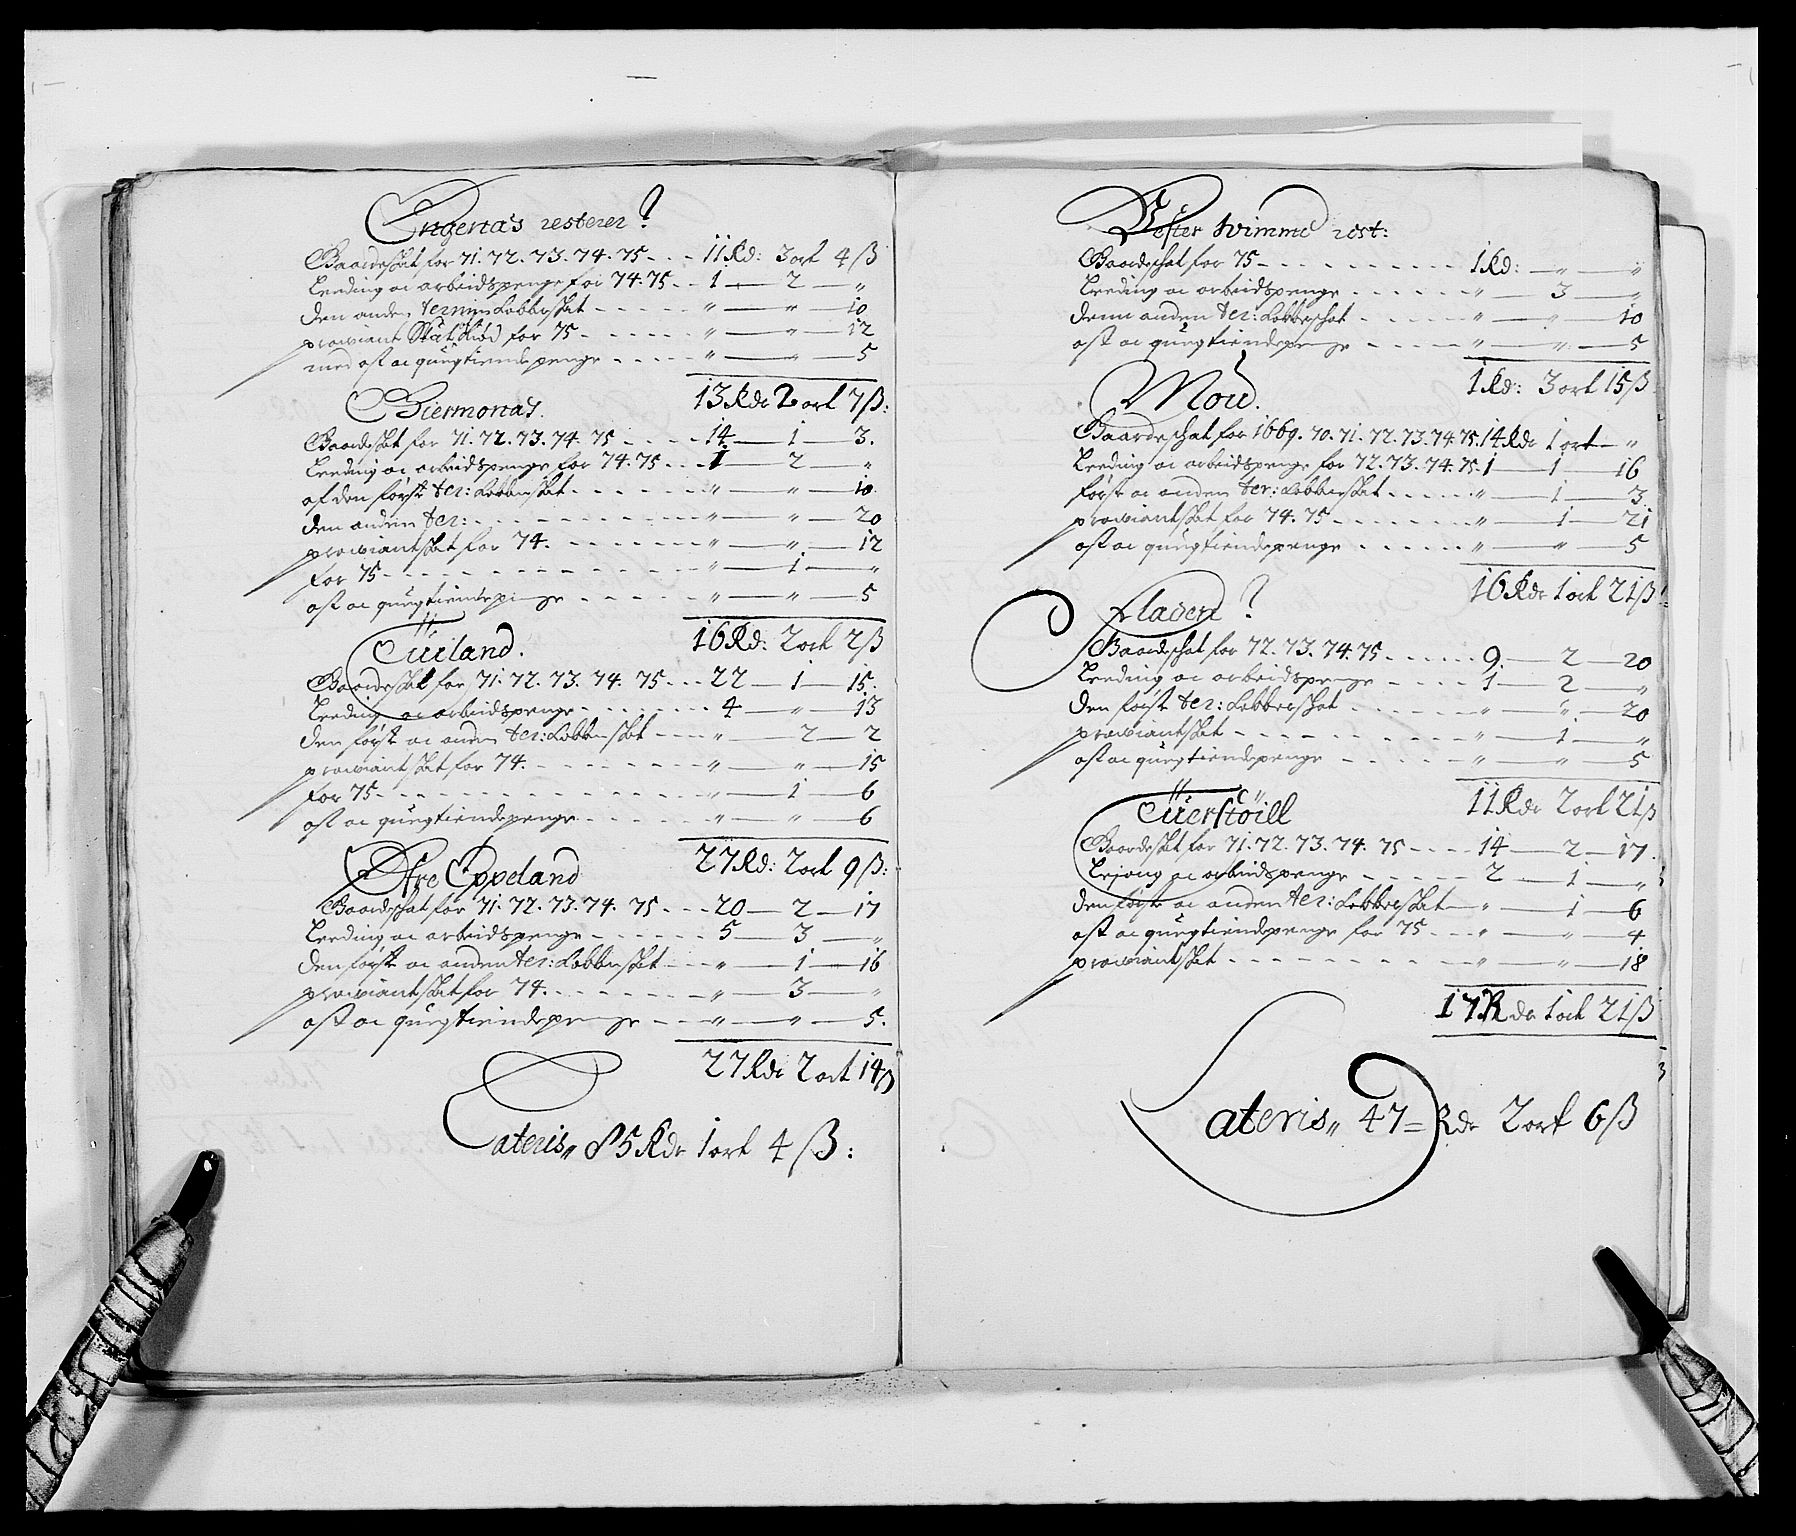 Engenas resterer
Gaardeskat for 71. 72. 73. 74. 75 - - - 11 Rd: 3 ort 4 ß
Leeding oc arbeidspenge for 74. 75 - - 1 — 2 — „
den anden termin Kobberskat - - - - - „ — „ — 10
proviant skat for 75 - - - - - - „ — „ — 12
med ost oc quegtiendepenge - - - - - „ — „ — 5
13 Rdr 2 ort 7 ß:
Biermonas.
Gaardeskat for 71. 72. 73. 74. 75 - - - - - 14 — 1 — 3.
Leeding oc arbeidspenge for 74. 75 - - - 1 — 2 — „
af den først ter: Kobberskat - - - - - - „ — „ — 10
den anden ter: - - - - - - - - - - „ — „ — 20
proviantskat for 74. - - - - - - - „ — „ — 12
for 75 - - - - - - - - - - - - „ — 1 — „
ost oc quegtiendepenge - - - - - - „ — „ — 5
16 Rd: 2 ort 2 ß
Tuiland.
Gaardeskat for 71. 72. 73. 74. 75 - - - 22 — 1 — 15.
Leeding oc arbeidspenge - - - - - - - 4 — „ — 13
den først oc anden ter: Kobberskat - - - „ — 2 — 2
proviantskat for 74. - - - - - - - - „ — „ — 15
for 75 - - - - - - - - - - - - - „ — 1 — 6
ost oc quegtiendepenge - - - - - - „ — „ — 6
27 Rd: 2 ort 9 ß:
Øfre Eppeland
Gaardeschat for 71. 72. 73. 74. 75 - - - 20 — 2 — 17
Leeding oc arbeidspenge - - - - - - 5 — 3 — „
den først oc anden ter: Kobberskat - - - „ — 1 — 16
proviantskat for 74. - - - - - - - „ — 3 — „
ost oc quegtiendepenge - - - „ — „ — 5.
27 Rdr 2 ort 14 ß
Lateris „ 85 Rdr 1 ort 4 ß:
Vester Wimme rest:
Gaardeschat for 75 - - - - - - - - - 1 Rd: — „ — „
Leeding oc arbeidspenge - - - - - - „ — 3 — „
denn anden ter: Kobberschat - - - - - „ — „ — 10
ost oc quegtiendepenge - - - - - „ — „ — 5
1 Rd: 3 ort 15 ß
Mou.
Gaardeschat for 1669. 70. 71. 72. 73. 74. 75. 14 Rdr 1 ort — „
Leeding oc arbeidspenge for 72. 73. 74. 75. 1 — 1 — 16
først oc anden ter: Kobberskat - - - - - „ — 1 — 3
proviantskat for 74. 75 - - - - - - - „ — 1 — 21
ost oc quegtiendepenge - - - - - - „ — „ — 5
16 Rdr 1 ort 21 ß:
Fladen
Gaardeschat for 72. 73. 74. 75 - - - - - - 9. — 2 — 20
Leeding oc arbeidspenge - - - - - 1 — 2 — „
den først ter: Kobberschat - - - - - - „ — „ — 20
proviantskat - - - - - - - - - - „ — 1 — „
ost oc quegtiendepenge - - - - - „ — „ — 5
11 Rdr 2 ort 21 ß
Tuerstöill
Gaardeskat for 71. 72. 73. 74. 75 - - - - 14 — 2 — 17.
Lejong oc arbeidspenge - - - - - - 2 — 1 — „
den først oc anden ter: Kobberskat — „ — 1 — 6
ost oc quegtiendepenge for 75 - - - „ — „ — 4
proviantskat - - - - - - - - - - „ — „ — 18
17 Rdr 1 ort 21 ß
Lateris „ 47 = Rdr 2 ort 6 ß